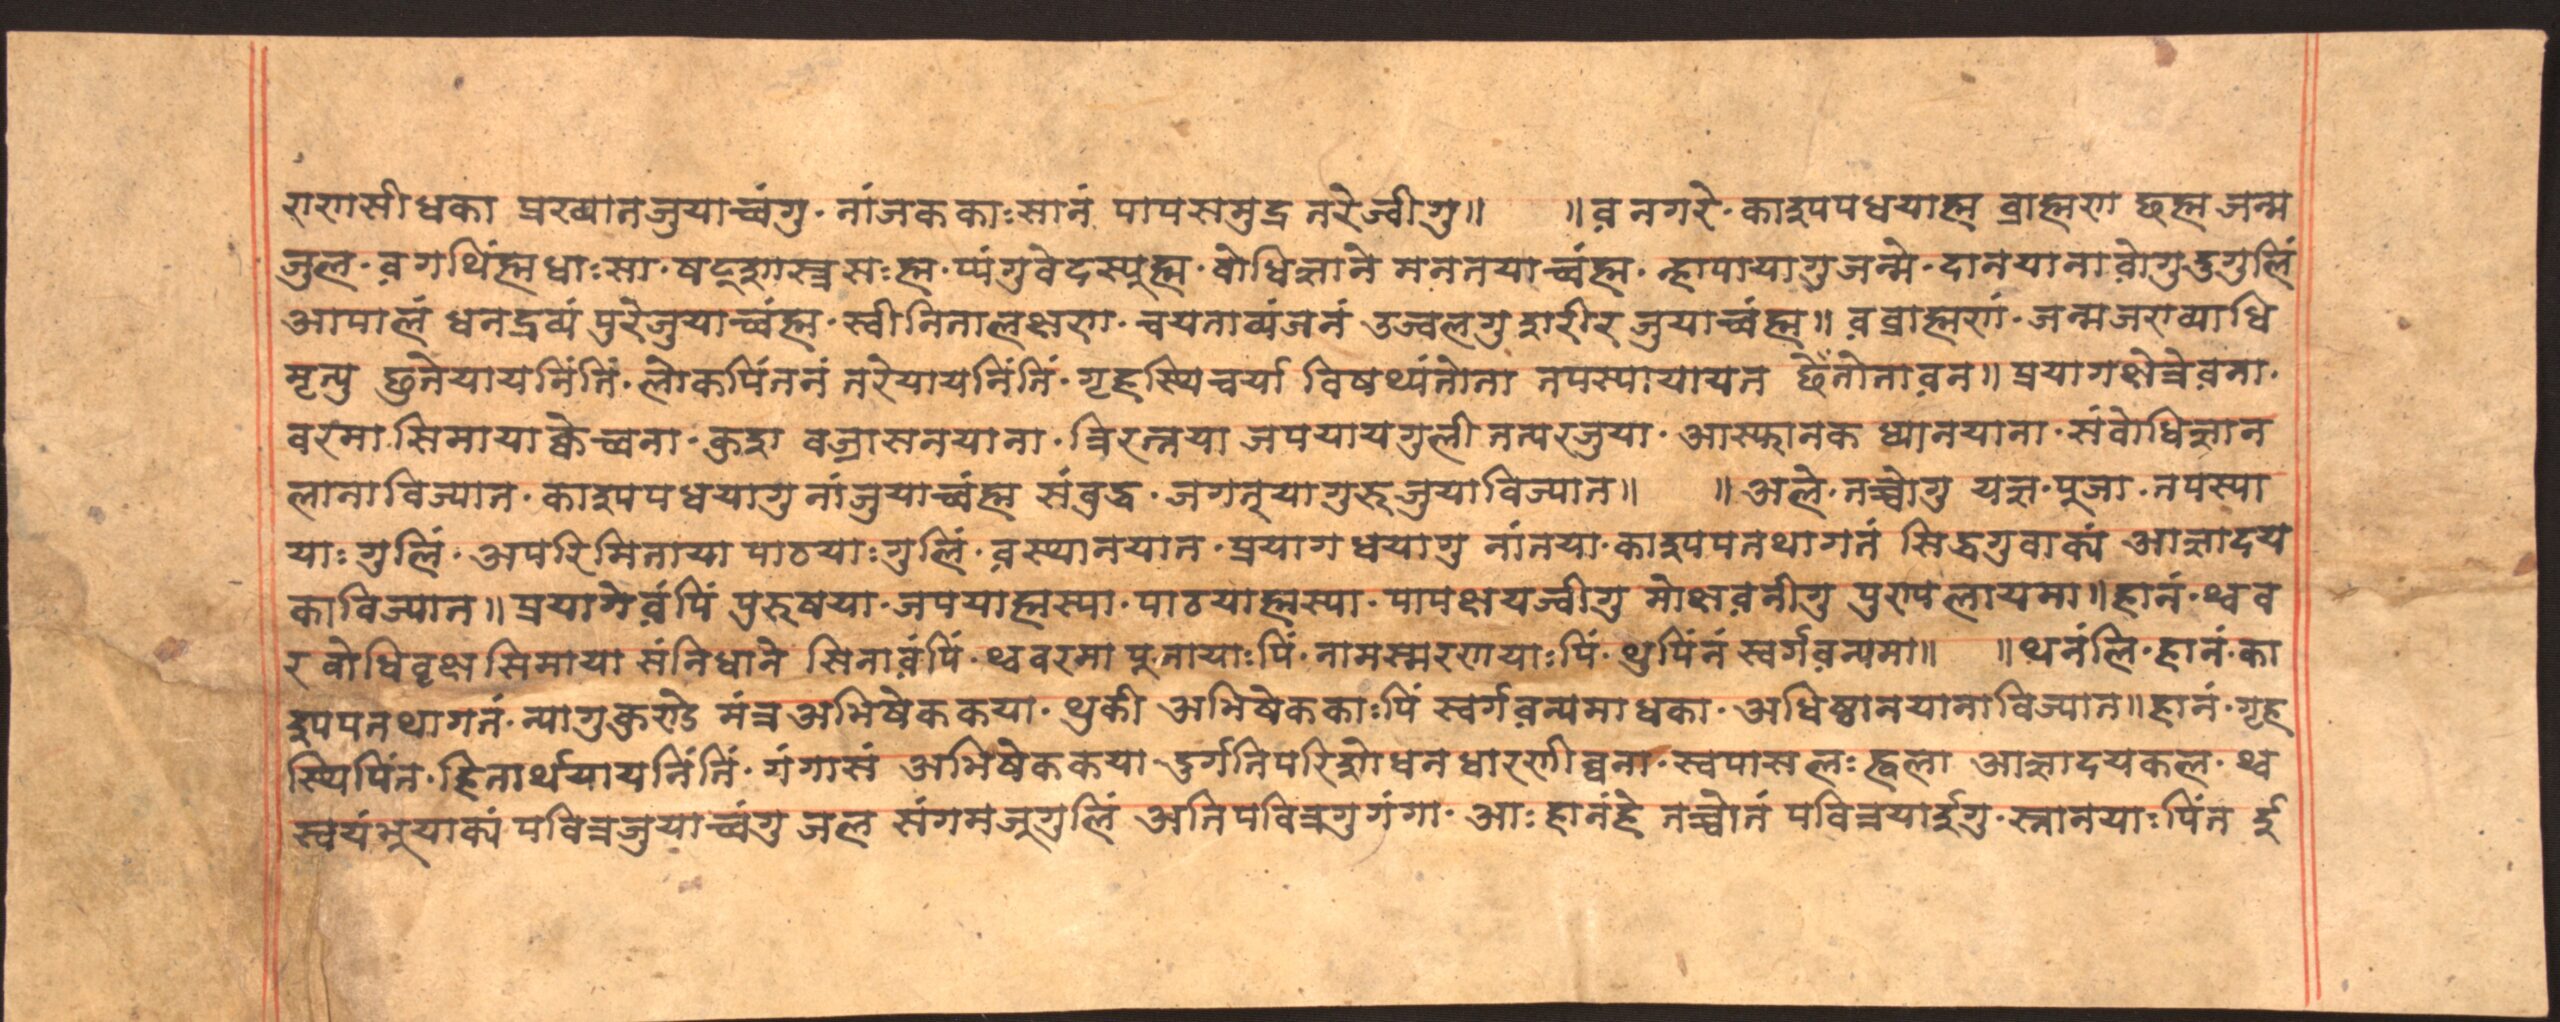 राणसीधका प्रख्यातजुयाच्वंगु· नांजककाःसानं पापसमुद्र तरेज्वीगु॥ ॥व़ नगरे· काश्यपधयाह्म ब्राह्मण छह्म जन्म
जुल· व़ गथिंह्मधाःसा· षट्शास्त्रसःह्म· प्यंगुवेदस्यूह्म· बोधिज्ञाने मननयाच्वंह्म· न्हापायागुजन्मे· दानयानाव़ोगुदुगुलिं
आपालं धनद्रव्यं पुरेजुयाच्वंह्म· स्वीनितालक्षण· चयताव्यंजनं उज्वलगु शरीर जुयाच्वंह्म॥ व़ ब्राह्मणं· जन्मजराव्याधि
मृत्यु छुतेयायनिंतिं· लोकपिंततं तरेयायनिंतिं· गृहस्थिचर्या विषथ्यंतोता तपस्यायायत छेँतोताव़न॥ प्रयागक्षेत्रेव़ना·
वरमा सिमायाक्वेच्वना· कुश वज्रासनयाना· त्रिरत्नया जपयायगुली तत्परजुया· आस्फानक ध्यानयाना· संबोधिज्ञान
लानाविज्यात· काश्यपधयागु नांजुयाच्वंह्म संबुद्ध· जगत्‌यागुरुजुयाविज्यात॥ ॥अले· तच्वोगु यज्ञ· पुजा· तपस्या
याःगुलिं· अपरिमिताया पाठयाःगुलिं· व़स्थानयात· प्रयागधयागु नांतया· काश्यपतथागतं सिद्धगुवाक्यं आज्ञादय
काविज्यात॥ प्रयागेव़ंपिं पुरुषया· जपयाह्मस्या· पाठयाह्मस्या· पापक्षयज्वीगु मोक्षव़नीगु पुण्यलायमा॥हानं· थ्वव
र बोधिवृक्षसिमाया संनिधाने सिनाव़ंपिं· थ्ववरमा पुनायाःपिं· नामस्मरणयाःपिं· थुपिंनं स्वर्गव़न्यमा॥ ॥थनंलि· हानं· का
श्यपतथागतं· न्यागुकुण्डे मंत्रअभिषेककया· थुकी अभिषेककाःपिं स्वर्गव़न्यमाधका· अधिष्ठानयानाविज्यात॥हानं· गृह
स्थिपिंत· हितार्थयायनिंतिं· गंगासं अभिषेककया दुर्गतिपरिशोधनधारणीब्वना· स्वपासलः ह्वला आज्ञादयकल· थ्व
स्वयंभूयाक्यं पवित्रजुयाच्वंगु जल संगमजूगुलिं अतिपवित्रगुगंगा· आः हानंहे तच्वोतं पवित्रयार्इगु· स्नानयाःपिंत र्इ